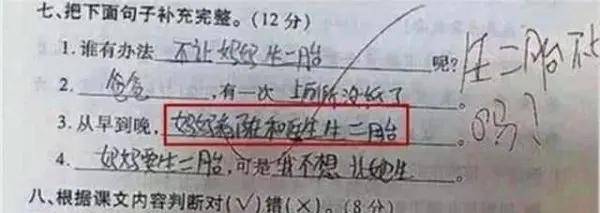 七、把下面句子补充完整。(12分)
1. 谁有办法 不让妈妈生二胎 呢?
2. 爸爸 ,有一次 上厕所没纸了 。
3. 从早到晚, 妈妈都 和医生生二胎 。
4. 妈妈要生二胎 ,可是 我不想让她生 。
生二胎不
吗?
八、根据课文内容判断对(√)错(×)。(8分)